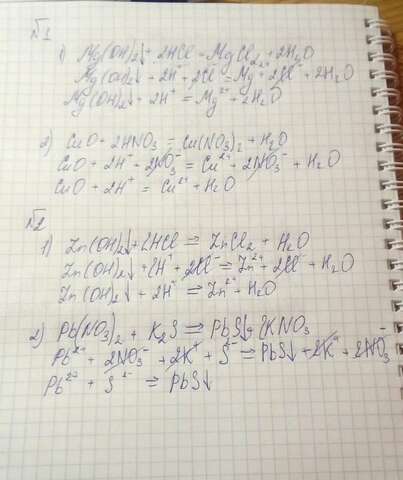 №1
1) Mg(OH)₂↓ + 2HCl = MgCl₂ + 2H₂O
Mg(OH)₂↓ + 2H⁺ + 2Cl⁻ = Mg²⁺ + 2Cl⁻ + 2H₂O
Mg(OH)₂↓ + 2H⁺ = Mg²⁺ + 2H₂O
2) CuO + 2HNO₃ = Cu(NO₃)₂ + H₂O
CuO + 2H⁺ + 2NO₃⁻ = Cu²⁺ + 2NO₃⁻ + H₂O
CuO + 2H⁺ = Cu²⁺ + H₂O
№2
1) Zn(OH)₂↓ + 2HCl = ZnCl₂ + H₂O
Zn(OH)₂↓ + 2H⁺ + 2Cl⁻ = Zn²⁺ + 2Cl⁻ + H₂O
Zn(OH)₂↓ + 2H⁺ = Zn²⁺ + H₂O
2) Pb(NO₃)₂ + K₂S = PbS↓ + 2KNO₃
Pb²⁺ + 2NO₃⁻ + 2K⁺ + S²⁻ = PbS↓ + 2K⁺ + 2NO₃⁻
Pb²⁺ + S²⁻ = PbS↓